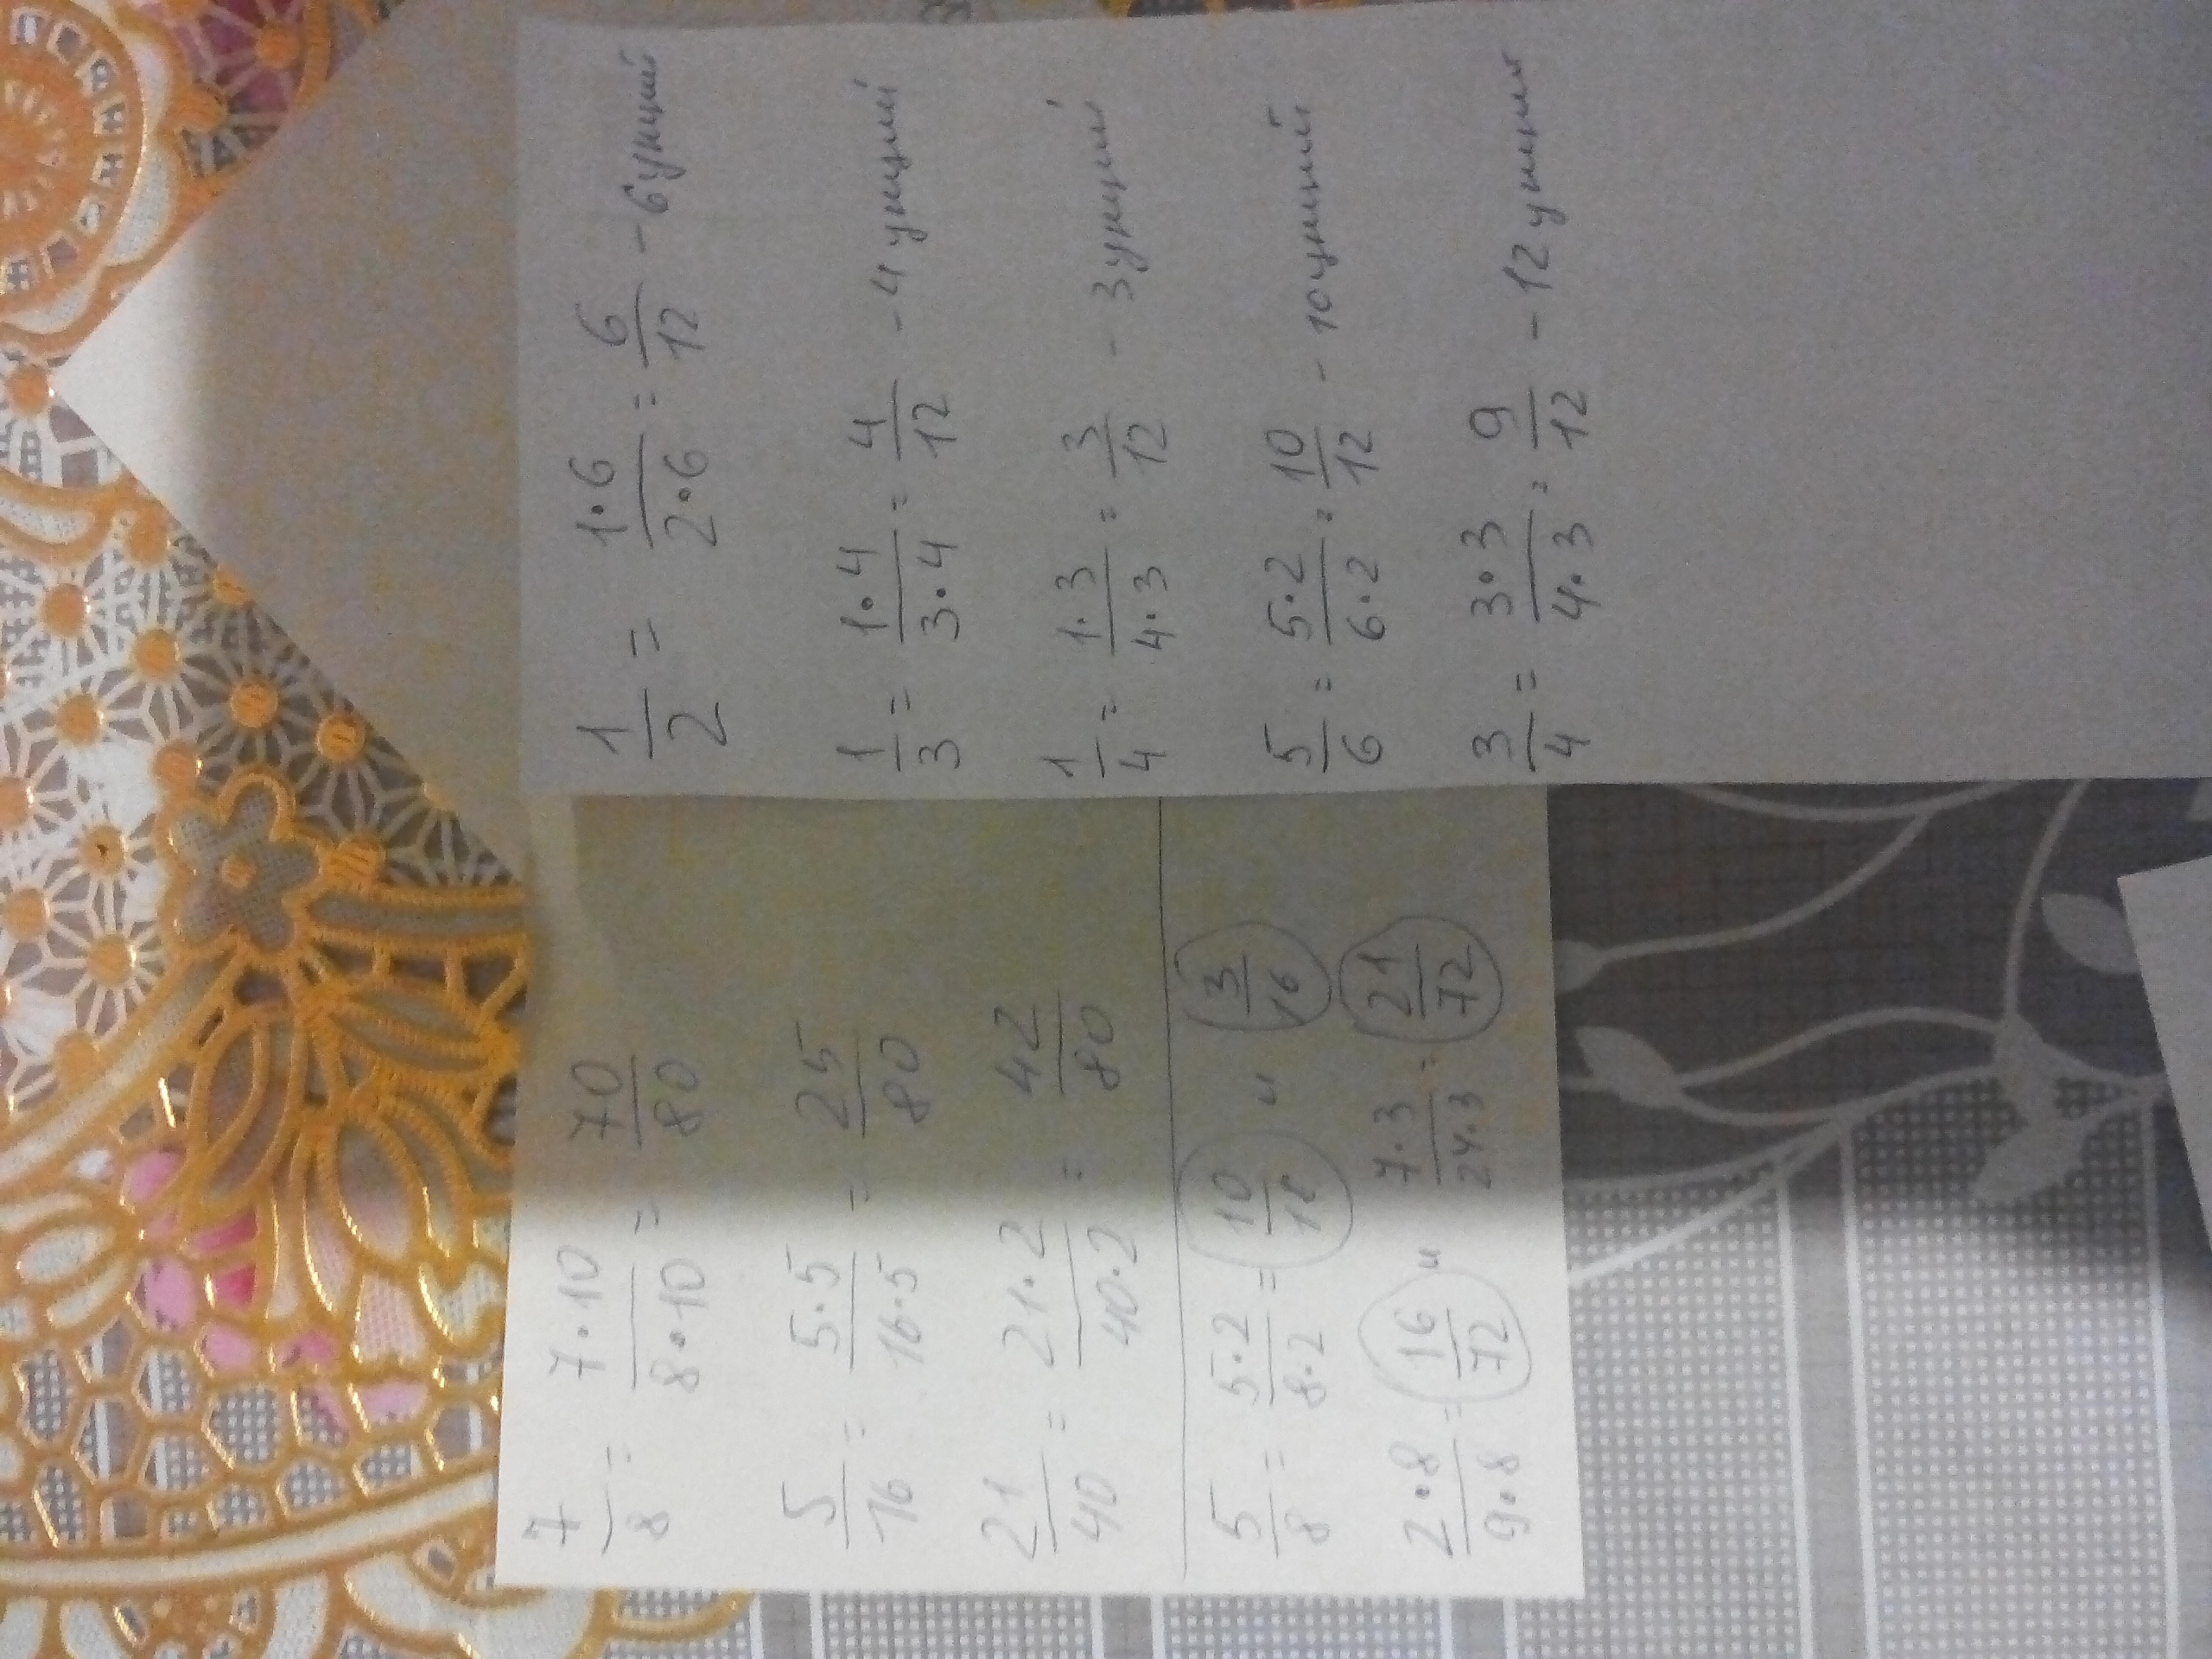 7/8 = 7·10/8·10 = 70/80
5/16 = 5·5/16·5 = 25/80
21/40 = 21·2/40·2 = 42/80
5/8 = 5·2/8·2 = 10/18 и 3/16
2·8/9·8 = 16/72 и 7·3/24·3 = 21/72
1/2 = 1·6/2·6 = 6/12 - 6 унций
1/3 = 1·4/3·4 = 4/12 - 4 унций
1/4 = 1·3/4·3 = 3/12 - 3 унций
5/6 = 5·2/6·2 = 10/12 - 10 унций
3/4 = 3·3/4·3 = 9/12 - 12 унит